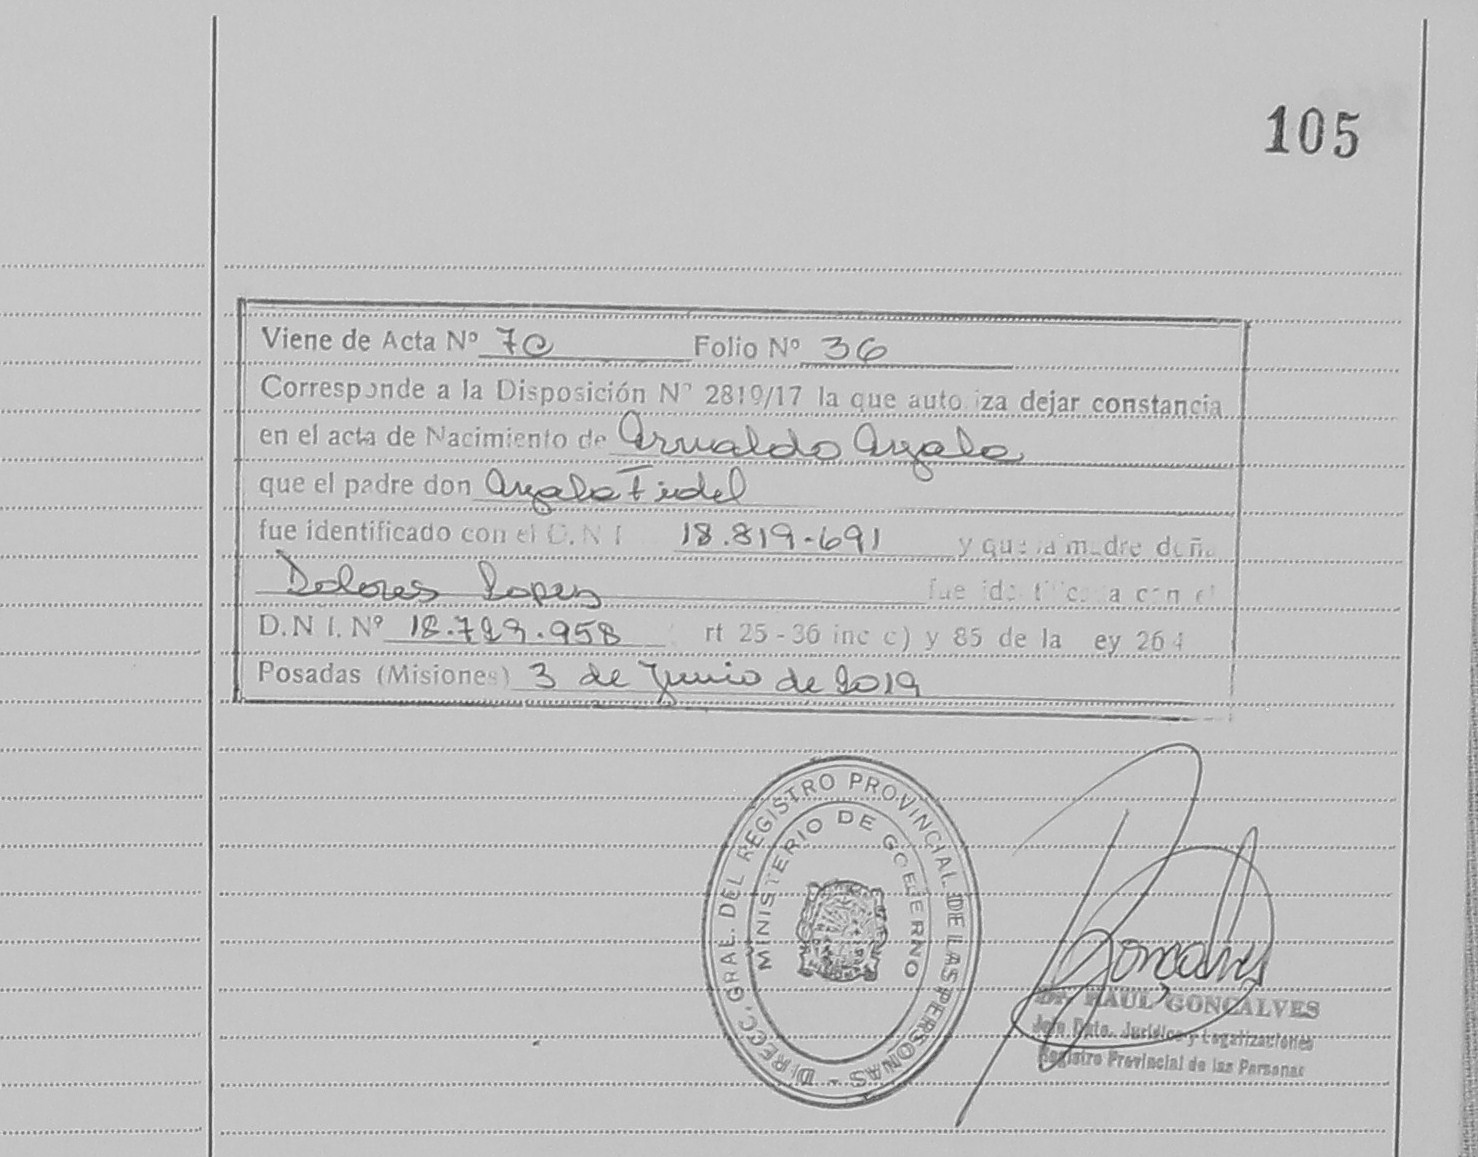 105
Viene de Acta Nº 70 Folio Nº 36
Corresponde a la Disposición Nº 2819/17 la que auto iza dejar constancia
en el acta de Nacimiento de Arnaldo Ayala
que el padre don Ayala Fidel
fue identificado con el D.N.I 18.819.691 y que la madre doña
Dolores Lopez fue ide t ca a con el
D.N.I. Nº 18.729.958 rt 25-36 inc c) y 85 de la ey 26 4
Posadas (Misiones) 3 de Junio de 2019
DIRECC. GRAL. DEL REGISTRO PROVINCIAL DE LAS PERSONAS -
MINISTERIO DE GOBIERNO
Goncalves
Dr. RAUL GONCALVES
Jefe Dpto. Jurídico y Legalizaciones
Registro Provincial de las Personas